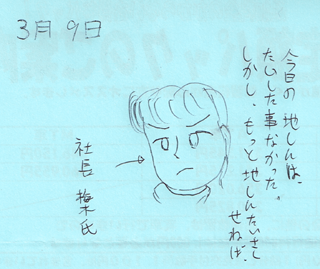 3月9日
今日の地しんは、
たいした事なかった。
しかし、もっと地しんたいさく
せねば。
社長 楽氏